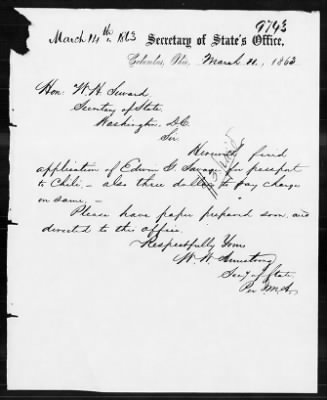 9743
March 14th 1863 Secretary of State's Office,
Columbus, Ohio, March 11, 1863
Hon: W. H. Seward,
Secretary of State,
Washington D.C.
Sir
Herewith find
application of Edwin G. Savage for passport
to Chili, – also three dollars to pay charges
on same. –
Please have paper prepared soon, and
directed to this office.
Respectfully Yours
W. W. Armstrong
Secy of State
Per